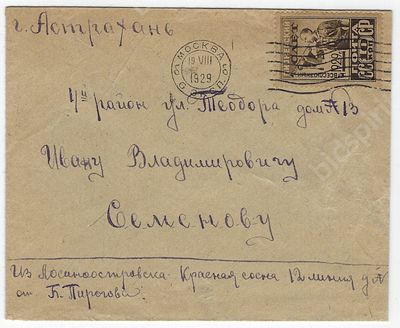 г. Астрахань
МОСКВА
19 VIII
1929
4й район ул. Теодора дом № 13
Ивану Владимировичу
Семенову
Из Лосиноостровска Красная сосна 12 линия д №
от Б. Пирогова